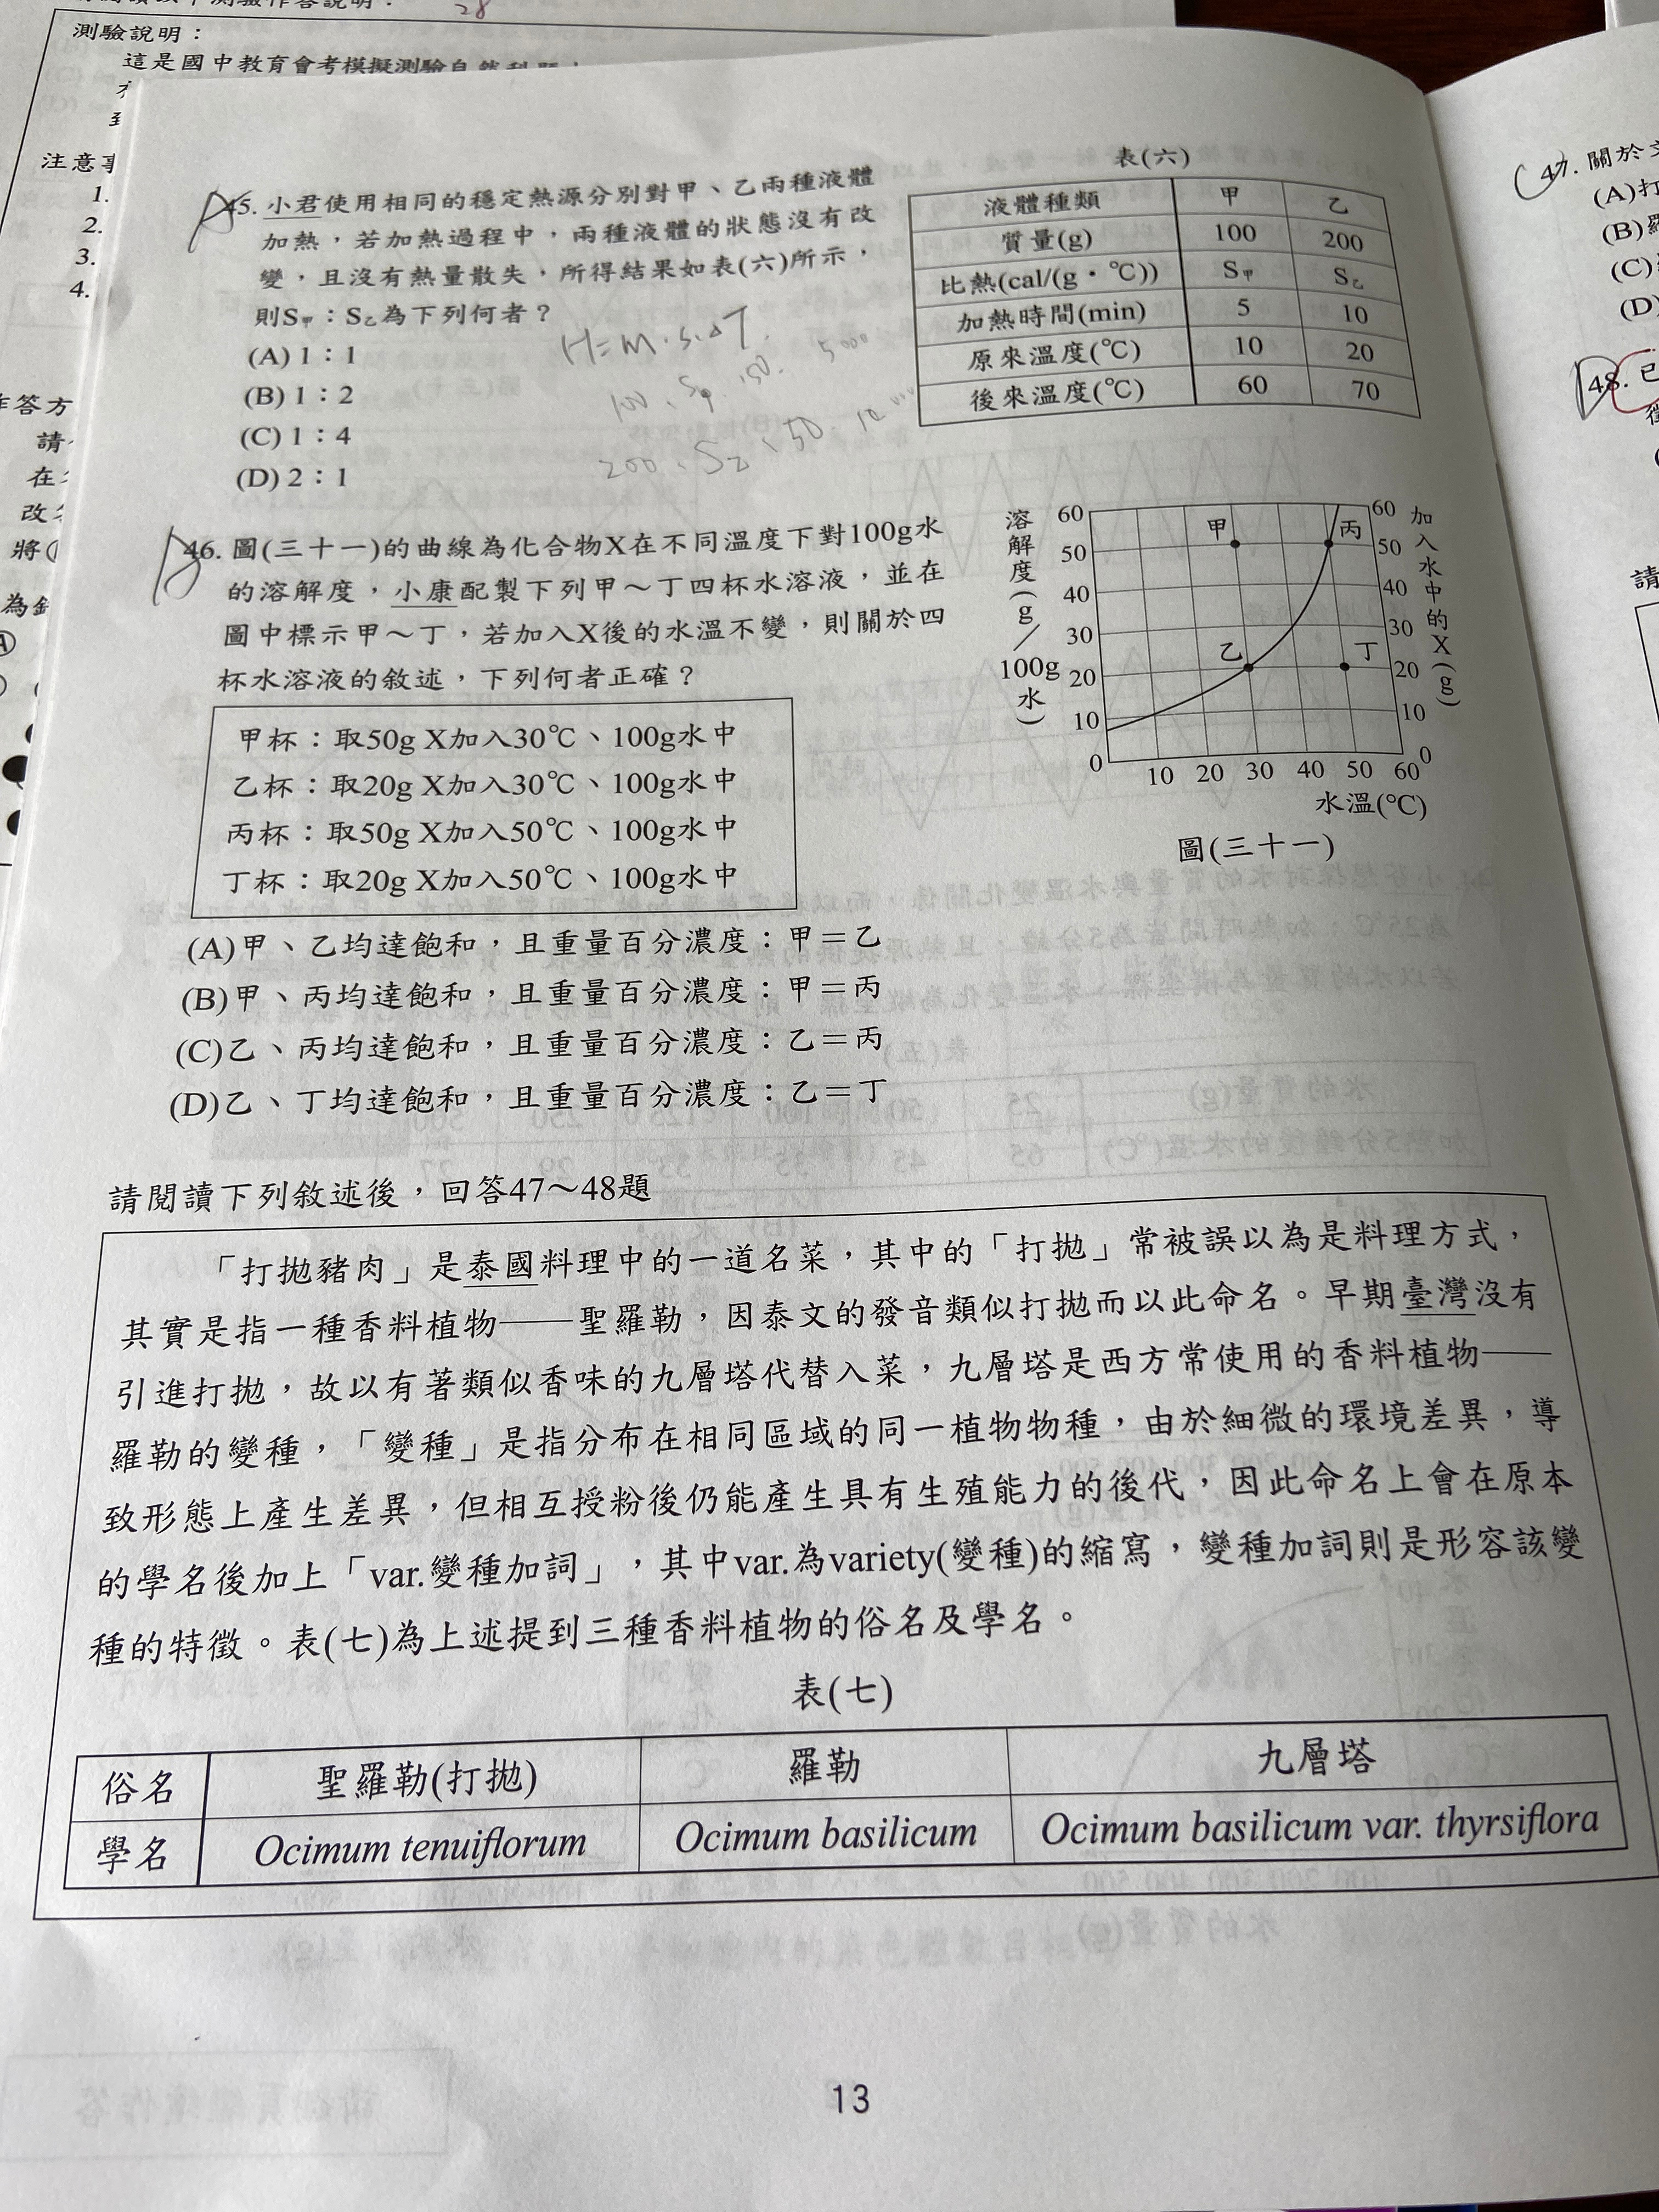 28
測驗說明：
這是國中教育會考模擬測驗自然科題本
注意事
1.
2.
3.
4.
作答方
請
在
改
將
為
45. 小君使用相同的穩定熱源分別對甲、乙兩種液體
加熱，若加熱過程中，兩種液體的狀態沒有改
變，且沒有熱量散失，所得結果如表(六)所示，
則S甲：S乙為下列何者？
(A) 1：1
(B) 1：2
(C) 1：4
(D) 2：1
H=M·S·ΔT
200、S乙、50
表(六)
液體種類 甲 乙
質量(g) 100 200
比熱(cal/(g・℃)) S甲 S乙
加熱時間(min) 5 10
原來溫度(℃) 10 20
後來溫度(℃) 60 70
46. 圖(三十一)的曲線為化合物X在不同溫度下對100g水
的溶解度，小康配製下列甲～丁四杯水溶液，並在
圖中標示甲～丁，若加入X後的水溫不變，則關於四
杯水溶液的敘述，下列何者正確？
甲杯：取50g X加入30℃、100g水中
乙杯：取20g X加入30℃、100g水中
丙杯：取50g X加入50℃、100g水中
丁杯：取20g X加入50℃、100g水中
溶解度(g／100g水)
60
50
40
30
20
10
0
甲
乙
丙
丁
60
50
40
30
20
10
0
加入水中的X(g)
10 20 30 40 50 60
水溫(℃)
圖(三十一)
(A)甲、乙均達飽和，且重量百分濃度：甲＝乙
(B)甲、丙均達飽和，且重量百分濃度：甲＝丙
(C)乙、丙均達飽和，且重量百分濃度：乙＝丙
(D)乙、丁均達飽和，且重量百分濃度：乙＝丁
請閱讀下列敘述後，回答47～48題
「打拋豬肉」是泰國料理中的一道名菜，其中的「打拋」常被誤以為是料理方式，
其實是指一種香料植物——聖羅勒，因泰文的發音類似打拋而以此命名。早期臺灣沒有
引進打拋，故以有著類似香味的九層塔代替入菜，九層塔是西方常使用的香料植物——
羅勒的變種，「變種」是指分布在相同區域的同一植物物種，由於細微的環境差異，導
致形態上產生差異，但相互授粉後仍能產生具有生殖能力的後代，因此命名上會在原本
的學名後加上「var.變種加詞」，其中var.為variety(變種)的縮寫，變種加詞則是形容該變
種的特徵。表(七)為上述提到三種香料植物的俗名及學名。
表(七)
俗名 聖羅勒(打拋) 羅勒 九層塔
學名 Ocimum tenuiflorum Ocimum basilicum Ocimum basilicum var. thyrsiflora
13
47. 關於
(A)打
(B)羅
(C)
(D)
48. 已
請